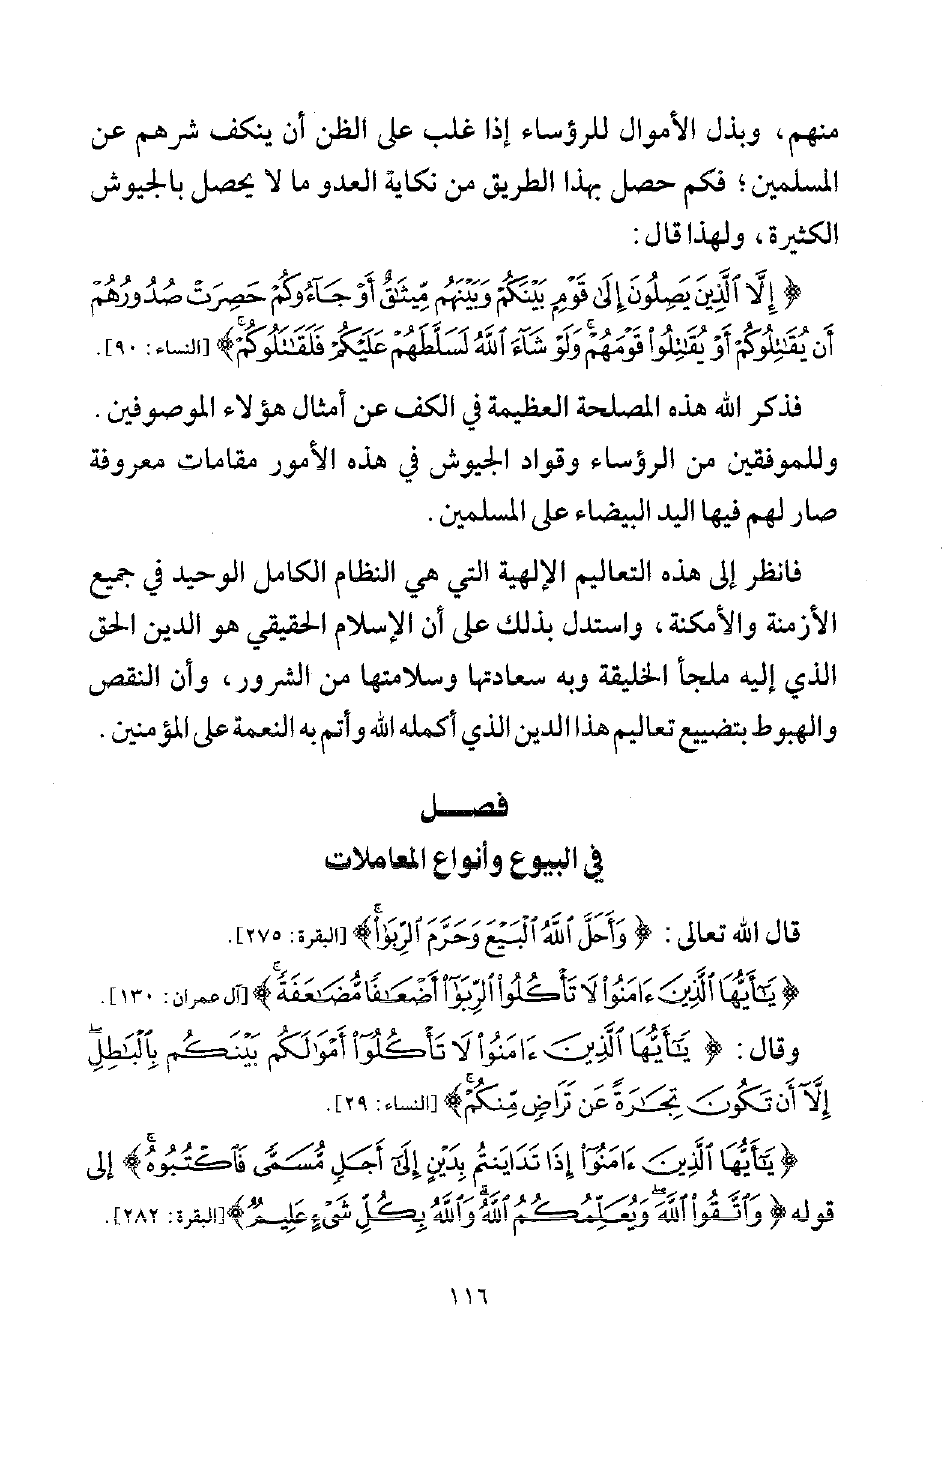 منهم، وبذل الأموال للرؤساء إذا غلب على الظن أن ينكف شرهم عن
المسلمين؛ فكم حصل بهذا الطريق من نكاية العدو ما لا يحصل بالجيوش
الكثيرة، ولهذا قال:
﴿ إِلَّا ٱلَّذِينَ يَصِلُونَ إِلَىٰ قَوْمٍ بَيْنَكُمْ وَبَيْنَهُم مِّيثَٰقٌ أَوْ جَآءُوكُمْ حَصِرَتْ صُدُورُهُمْ
أَن يُقَٰتِلُوكُمْ أَوْ يُقَٰتِلُوا۟ قَوْمَهُمْ ۚ وَلَوْ شَآءَ ٱللَّهُ لَسَلَّطَهُمْ عَلَيْكُمْ فَلَقَٰتَلُوكُمْ ۚ﴾ [النساء: ٩٠].
فذكر الله هذه المصلحة العظيمة في الكف عن أمثال هؤلاء الموصوفين.
وللموفقين من الرؤساء وقواد الجيوش في هذه الأمور مقامات معروفة
صار لهم فيها اليد البيضاء على المسلمين.
فانظر إلى هذه التعاليم الإلهية التي هي النظام الكامل الوحيد في جميع
الأزمنة والأمكنة، واستدل بذلك على أن الإسلام الحقيقي هو الدين الحق
الذي إليه ملجأ الخليقة وبه سعادتها وسلامتها من الشرور، وأن النقص
والهبوط بتضييع تعاليم هذا الدين الذي أكمله الله وأتم به النعمة على المؤمنين.
فصل
في البيوع وأنواع المعاملات
قال الله تعالى: ﴿ وَأَحَلَّ ٱللَّهُ ٱلْبَيْعَ وَحَرَّمَ ٱلرِّبَوٰا۟ ۚ﴾ [البقرة: ٢٧٥].
﴿ يَٰٓأَيُّهَا ٱلَّذِينَ ءَامَنُوا۟ لَا تَأْكُلُوا۟ ٱلرِّبَوٰٓا۟ أَضْعَٰفًا مُّضَٰعَفَةً ۖ﴾ [آل عمران: ١٣٠].
وقال: ﴿ يَٰٓأَيُّهَا ٱلَّذِينَ ءَامَنُوا۟ لَا تَأْكُلُوٓا۟ أَمْوَٰلَكُم بَيْنَكُم بِٱلْبَٰطِلِ
إِلَّآ أَن تَكُونَ تِجَٰرَةً عَن تَرَاضٍ مِّنكُمْ ۚ﴾ [النساء: ٢٩].
﴿ يَٰٓأَيُّهَا ٱلَّذِينَ ءَامَنُوٓا۟ إِذَا تَدَايَنتُم بِدَيْنٍ إِلَىٰٓ أَجَلٍ مُّسَمًّى فَٱكْتُبُوهُ ۚ﴾ إلى
قوله ﴿ وَٱتَّقُوا۟ ٱللَّهَ ۖ وَيُعَلِّمُكُمُ ٱللَّهُ ۗ وَٱللَّهُ بِكُلِّ شَىْءٍ عَلِيمٌ﴾ [البقرة: ٢٨٢].
١١٦